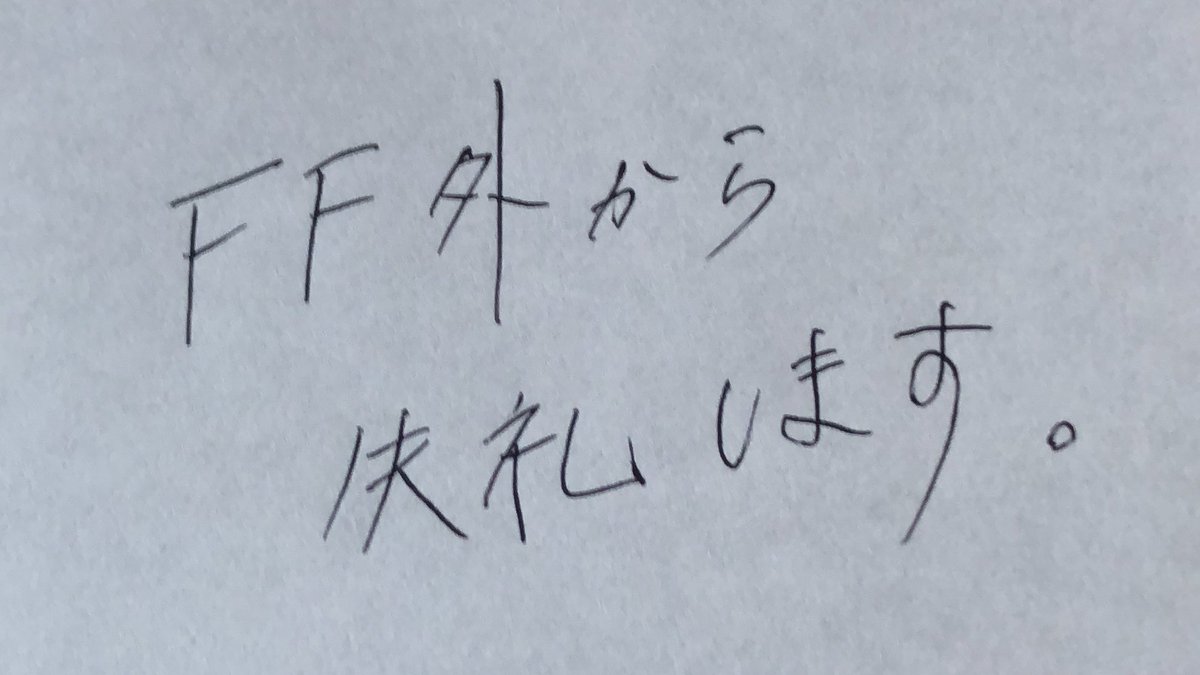 FF外から
失礼します。